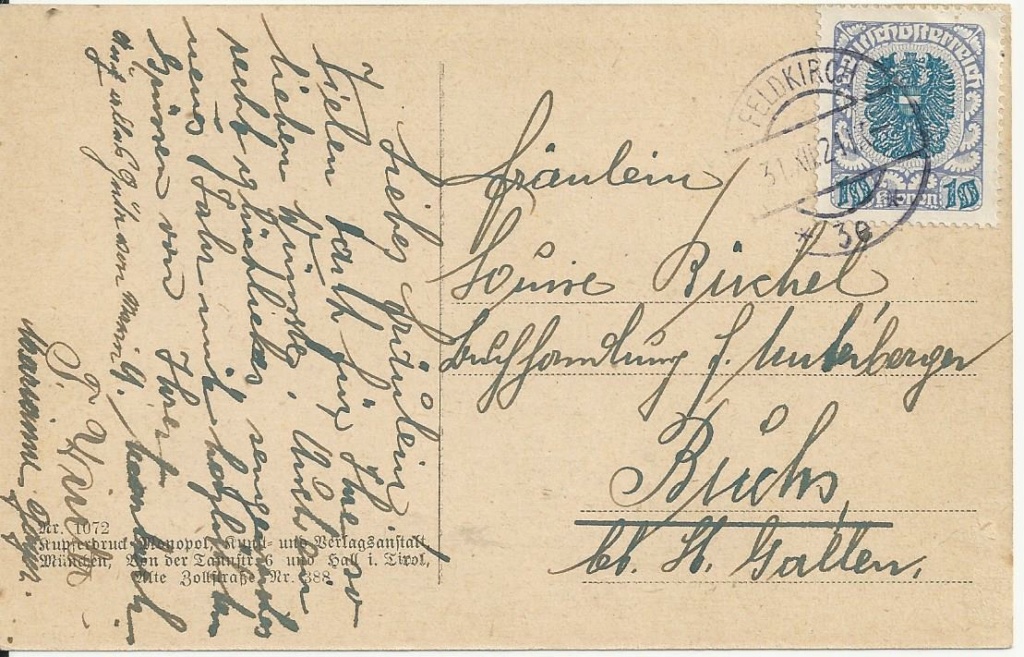 Liebes Fräulein!
Vielen Dank für Ihre so
lieben Wünsche. Auch ein
recht glückliches, segensreiches
neues Jahr mit herzlichen
Grüssen von Ihrer
Marianne
Fräulein
Louise Büchel
Buchhandlung J. Unterberger
Buchs
bl. St. Gallen.
Deutschösterreich
10 Kronen 10
FELDKIRCH
31.XII.21
* 3e *
Nr. 1072
Kupferdruck-Monopol, Kunst- und Verlagsanstalt
München, Von der Tannstr. 6 und Hall i. Tirol,
Alte Zollstraße Nr. 388